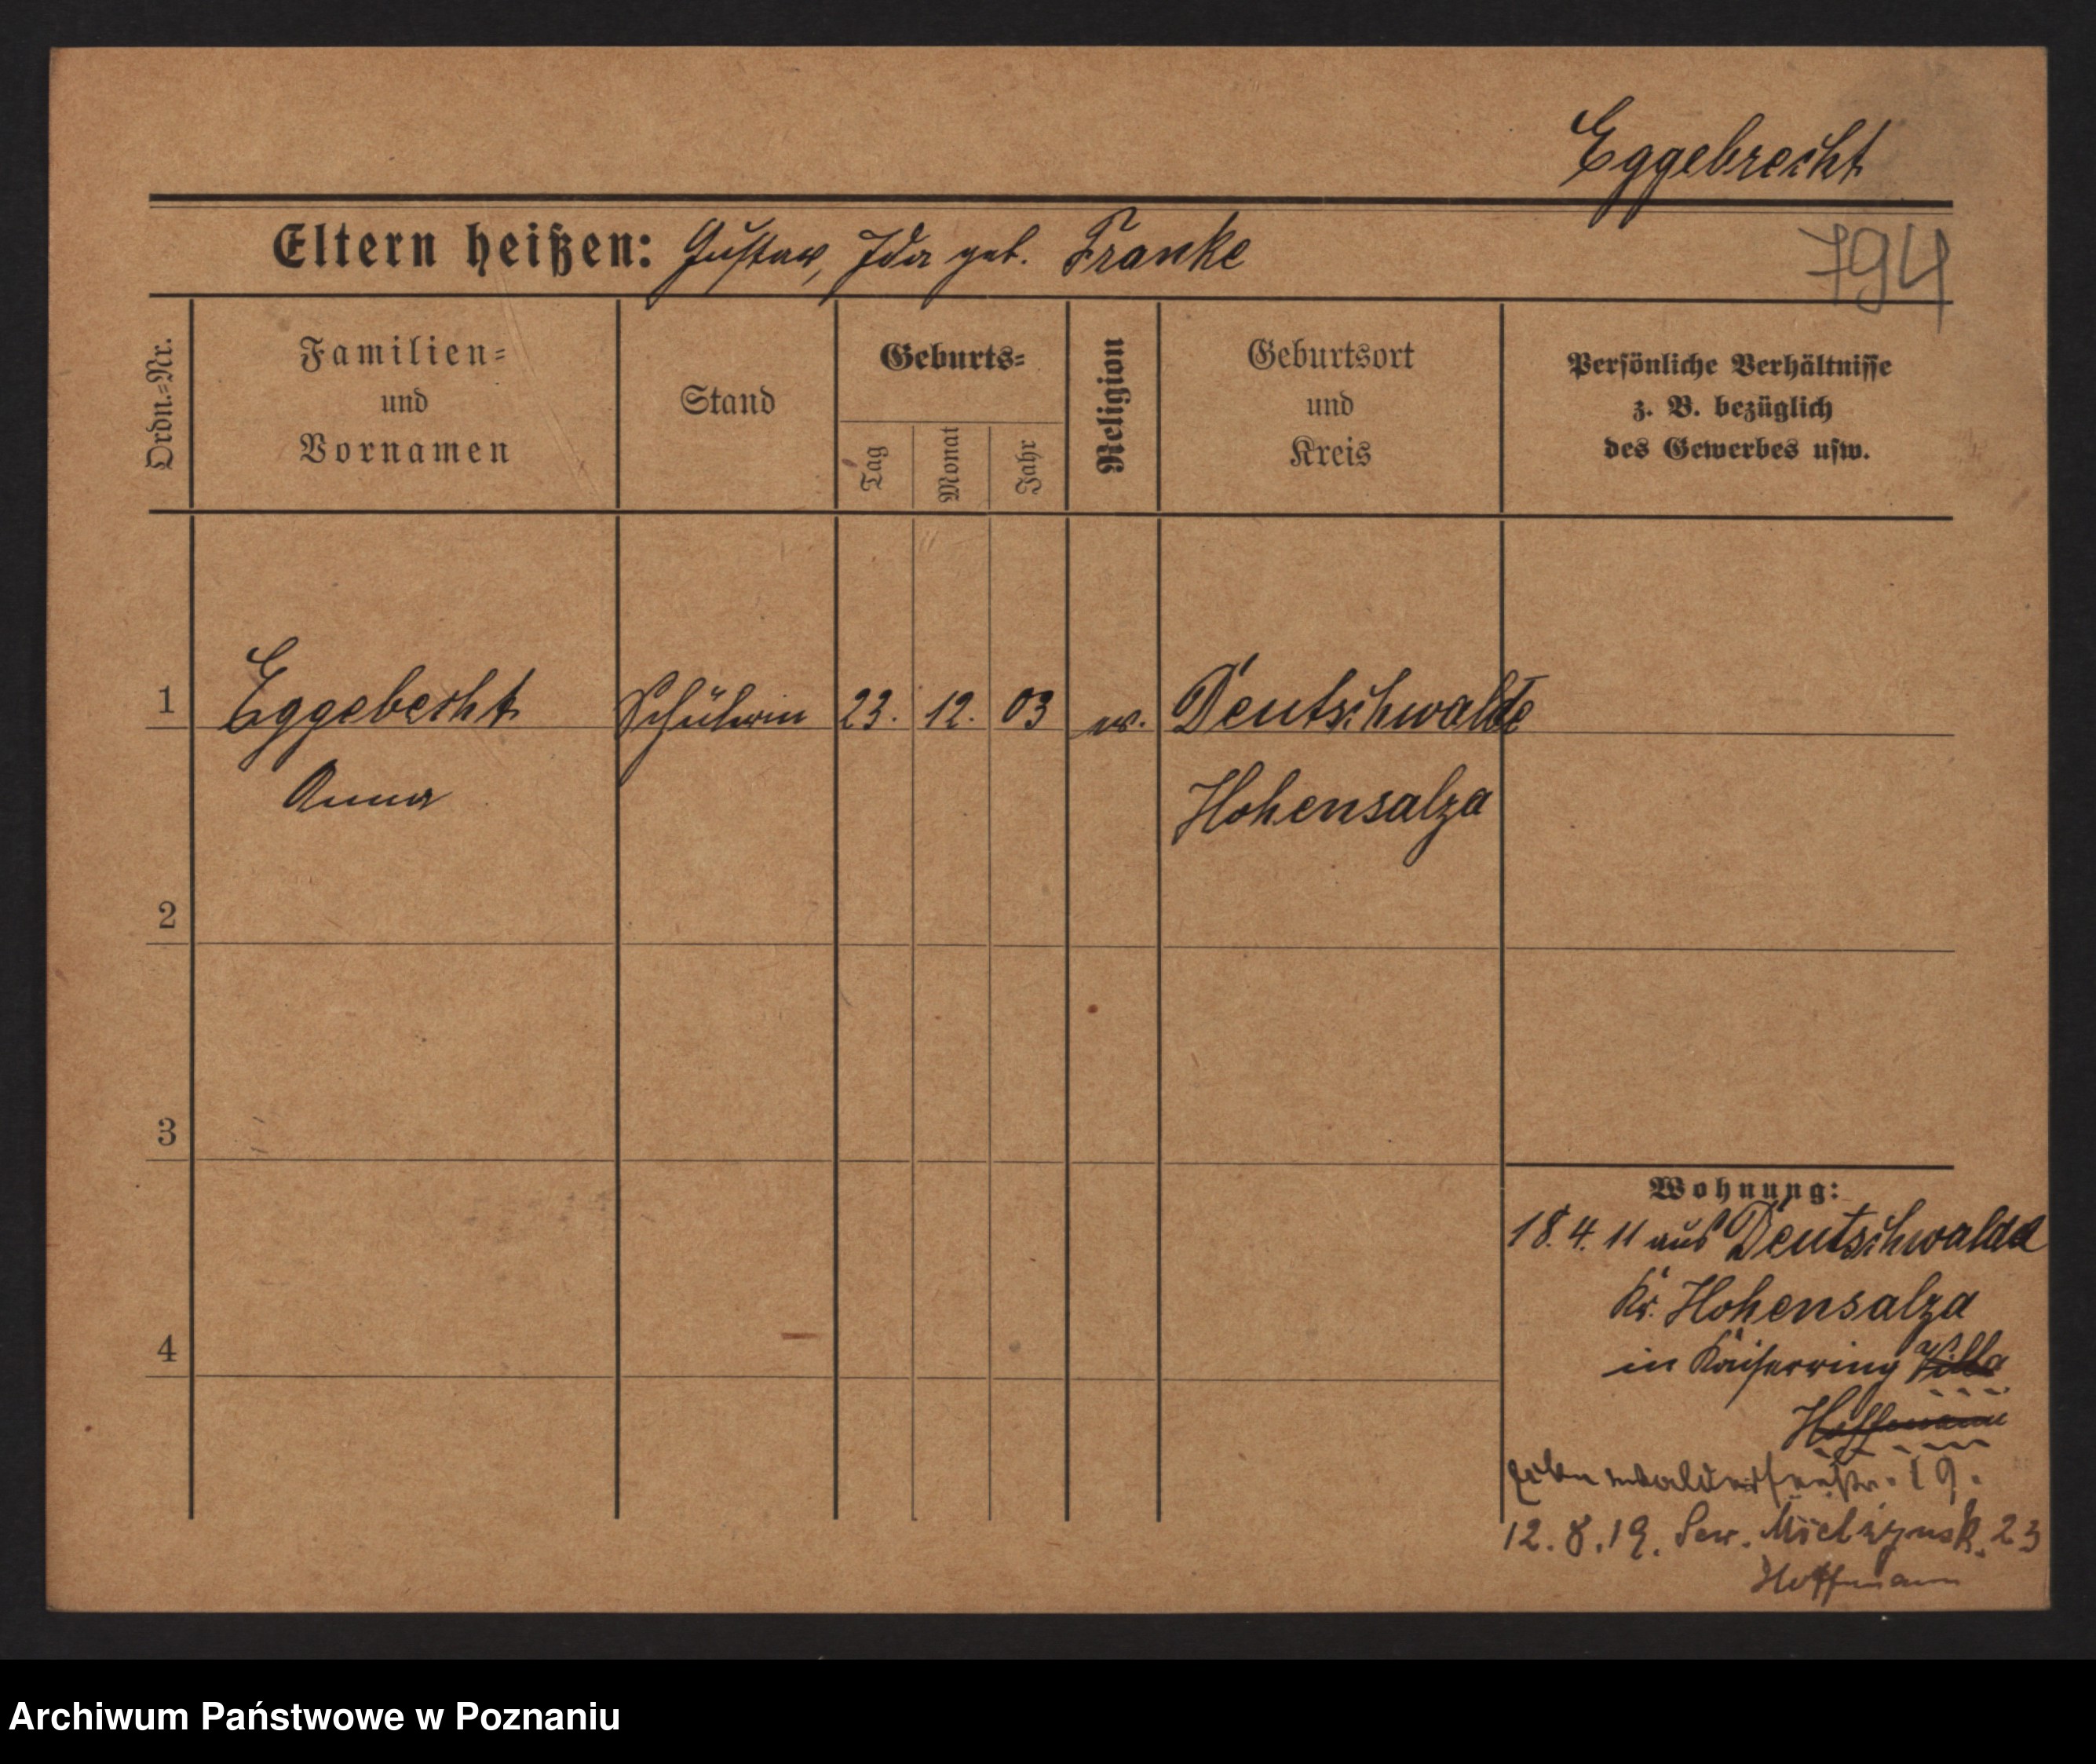 Eggebrecht
Eltern heißen: Gustav, Ida geb. Franke
794
Ordn.=Nr.
Familien=
und
Vornamen
Stand
Geburts=
Tag
Monat
Jahr
Religion
Geburtsort
und
Kreis
Persönliche Verhältnisse
z. B. bezüglich
des Gewerbes usw.
1 Eggebecht Schülerin 23. 12. 03 ev. Deutschwalde
Anna Hohensalza
2
3
4
Wohnung:
18.4.11 aus Deutschwalde
Kr. Hohensalza
in Kaiserring Villa
Hoffmann
19.
12.8.19. Sew. Mielżynsk. 23
Hoffmann
Archiwum Państwowe w Poznaniu